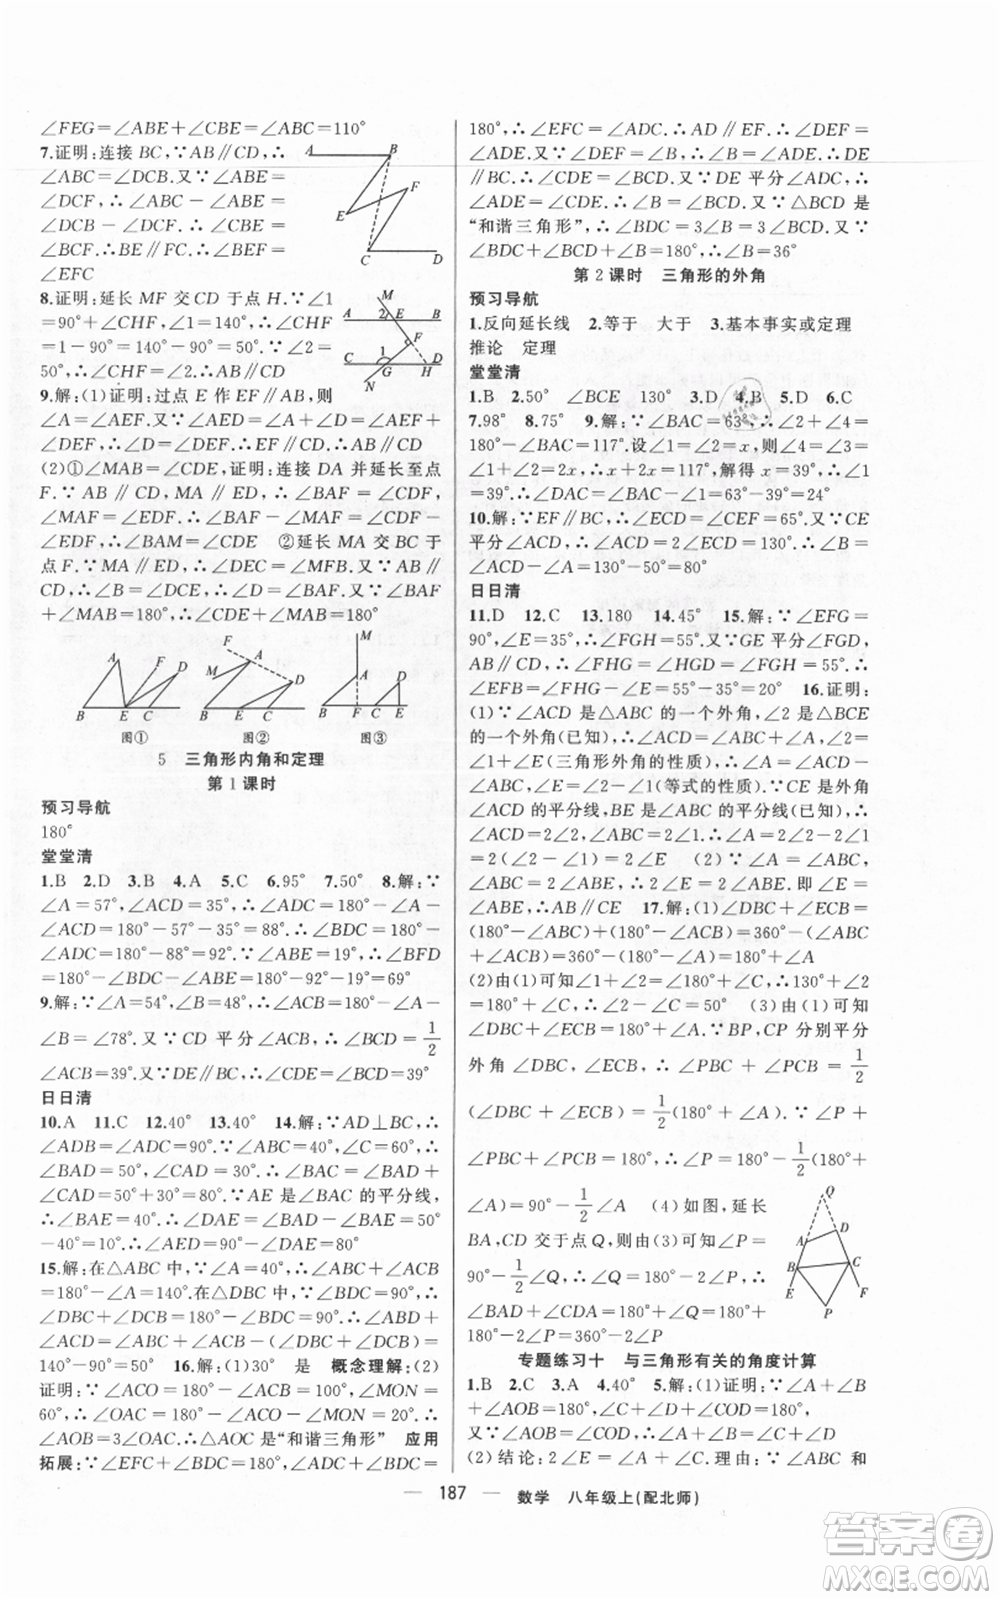 ∠FEG=∠ABE+∠CBE=∠ABC=110°
7.证明:连接 BC,∵AB∥CD,∴
∠ABC=∠DCB.又∵∠ABE=
∠DCF,∴∠ABC-∠ABE=
∠DCB-∠DCF.∴∠CBE=
∠BCF.∴BE∥CF.∴∠BEF=
∠EFC
A B F E C D
8.证明:延长 MF 交 CD 于点 H.∵∠1
=90°+∠CHF,∠1=140°,∴∠CHF=
∠1-90°=140°-90°=50°.∵∠2=
50°,∴∠CHF=∠2.∴AB∥CD
M A 2 E B F C 1 G H D N
9.解:(1)证明:过点 E 作 EF∥AB,则
∠A=∠AEF.又∵∠AED=∠A+
∠D=∠AEF+∠DEF,∴∠D=
∠DEF.∴EF∥CD.∴AB∥CD
(2)①∠MAB=∠CDE,证明:连接 DA 并延长至点
F.∵AB∥CD,MA∥ED,∴∠BAF=∠CDF,
∠MAF=∠EDF.∴∠BAF-∠MAF=∠CDF-
∠EDF,∴∠BAM=∠CDE ②延长 MA 交 BC 于
点 F.∵MA∥DE,∴∠DEC=∠MFB.又∵AB∥
CD,∴∠B=∠DCE,∴∠CDE=∠BAF.∵∠BAF
+∠MAB=180°,∴∠CDE+∠MAB=180°
A F D B E C
图①
F A M D B E C
图②
M A D B F C E
图③
5 三角形内角和定理
第 1 课时
预习导航
180°
堂堂清
1.B 2.D 3.B 4.A 5.C 6.95° 7.50° 8.解:∵
∠A=57°,∠ACD=35°,∴∠ADC=180°-∠A-
∠ACD=180°-57°-35°=88°.∴∠BDC=180°-
∠ADC=180°-88°=92°.∵∠ABE=19°,∴∠BFD
=180°-∠BDC-∠ABE=180°-92°-19°=69°
9.解:∵∠A=54°,∠B=48°,∴∠ACB=180°-∠A-
∠B=∠78°.又∵CD 平分∠ACB,∴∠BCD=1/2
∠ACB=39°.又∵DE∥BC,∴∠CDE=∠BCD=39°
日日清
10.A 11.C 12.40° 13.40° 14.解:∵AD⊥BC,∴
∠ADB=∠ADC=90°.∵∠ABC=40°,∠C=60°,∴
∠BAD=50°,∠CAD=30°.∴∠BAC=∠BAD+
∠CAD=50°+30°=80°.∵AE 是∠BAC 的平分线,
∴∠BAE=40°.∴∠DAE=∠BAD-∠BAE=50°
-40°=10°.∴∠AED=90°-∠DAE=80°
15.解:在△ABC 中,∵∠A=40°,∴∠ABC+∠ACB
=180°-∠A=140°.在△DBC 中,∵∠BDC=90°,∴
∠DBC+∠DCB=180°-∠BDC=90°.∴∠ABD+
∠ACD=∠ABC+∠ACB-(∠DBC+∠DCB)=
140°-90°=50° 16.解:(1)30° 是 概念理解:(2)
证明:∵∠ACO=180°-∠ACB=90°,∠MON=
60°,∴∠OAC=180°-∠ACO-∠MON=20°.∴
∠AOB=3∠OAC.∴△AOC 是“和谐三角形” 应用
拓展:∵∠EFC+∠BDC=180°,∠ADC+∠BDC=
180°,∴∠EFC=∠ADC.∴AD∥EF.∴∠DEF=
∠ADE.又∵∠DEF=∠B,∴∠B=∠ADE.∴DE
∥BC.∴∠CDE=∠BCD.∵DE 平分∠ADC,∴
∠ADE=∠CDE.∴∠B=∠BCD.又∵△BCD 是
“和谐三角形”,∴∠BDC=3∠B=3∠B.又∵
∠BDC+∠BCD+∠B=180°,∴∠B=36°
第 2 课时 三角形的外角
预习导航
1.反向延长线 2.等于 大于 3.基本事实或定理
推论 定理
堂堂清
1.B 2.50° ∠BCE 130° 3.D 4.B 5.D 6.C
7.98° 8.75° 9.解:∵∠BAC=63°,∴∠2+∠4=
180°-∠BAC=117°.设∠1=∠2=x,则∠4=∠3=
∠1+∠2=2x,∴x+2x=117°,解得 x=39°,∴∠1
=39°.∴∠DAC=∠BAC-∠1=63°-39°=24°
10.解:∵EF∥BC,∴∠ECD=∠CEF=65°.又∵CE
平分∠ACD,∴∠ACD=2∠ECD=130°.∴∠B=
∠ACD-∠A=130°-50°=80°
日日清
11.D 12.C 13.180 14.45° 15.解:∵∠EFG=
90°,∠E=35°,∴∠FGH=55°.又∵GE 平分∠FGD,
AB∥CD,∴∠FHG=∠HGD=∠FGH=55°.∴
∠EFB=∠FHG-∠E=55°-35°=20° 16.证明:
(1)∵∠ACD 是△ABC 的一个外角,∠2 是△BCE
的一个外角(已知),∴∠ACD=∠ABC+∠A,∠2=
∠1+∠E(三角形外角的性质),∴∠A=∠ACD-
∠ABC,∠E=∠2-∠1(等式的性质).∵CE 是外角
∠ACD 的平分线,BE 是∠ABC 的平分线(已知),∴
∠ACD=2∠2,∠ABC=2∠1.∴∠A=2∠2-2∠1
=2(∠2-∠1)=2∠E (2)∵∠A=∠ABC,
∠A=2∠E,∠ABC=2∠ABE.即∠E=
∠ABE,∴AB∥CE 17.解:(1)∠DBC+∠ECB=
(180°-∠ABC)+(180°-∠ACB)=360°-
(∠ABC+∠ACB)=360°-(180°-∠A)=180°+∠A
(2)由(1)可知∠1+∠2=180°+∠C,∴130°+∠2
=180°+∠C,∴∠2-∠C=50° (3)由(1)可知
∠DBC+∠ECB=180°+∠A.∵BP,CP 分别平分
外角∠DBC,∠ECB,∴∠PBC+∠PCB=1/2
(∠DBC+∠ECB)=1/2(180°+∠A).∵∠P+
∠PBC+∠PCB=180°,∴∠P=180°-1/2(180°+
∠A)=90°-1/2∠A (4)如图,延长
BA,CD 交于点 Q,则由(3)可知∠P=
90°-1/2∠Q,∴∠Q=180°-2∠P.∴
∠BAD+∠CDA=180°+∠Q=180°+
180°-2∠P=360°-2∠P
Q A D B C E F P
专题练习十 与三角形有关的角度计算
1.B 2.C 3.A 4.10° 5.解:(1)证明:∵∠A+∠B
+∠AOB=180°,∠C+∠D+∠COD=180°,
又∵∠AOB=∠COD,∴∠A+∠B=∠C+∠D
(2)结论:2∠E=∠A+∠C,∵∠ABC 和
187 数学 八年级上(配北师)
答案圈
MXQE.COM